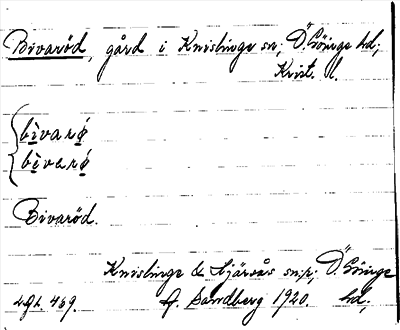 Bivaröd, gård i Knislinge sn; Ö. Göinge hd;
Krist. l.
bìvarø
bìvarø
Bivaröd.
Knislinge & Hjärsås sn:r; Ö. Göinge
Lgl. 469. A. Sandberg 1920. hd;